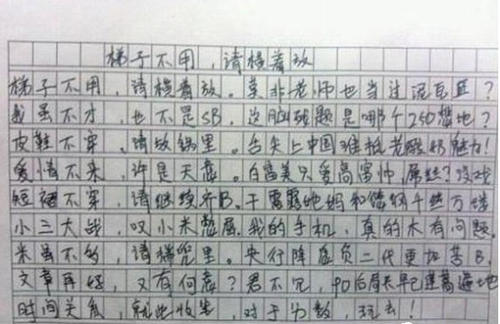 梯子不用,请横着放
梯子不用,请横着放。莫非老师也当过泥瓦匠?
我虽不才,也不是SB,这脑残题是哪个250想地?
皮鞋不穿,请放锅里。当失上中国难抵老酸奶魅力!
爱情不来,许是天意。白富美只爱高富帅,屌丝?没戏
短裙不穿,请继续齐B。干露露她妈和
小三大战,叹小米憋屈,我的手机,真的木有问题。
米虽不多,请揣兜里。央行降息负二代更加苦B。
文章再好,又有何意?君不见,90后局长早已遍地
时间关系,就此收笔,对于分数,玩去!